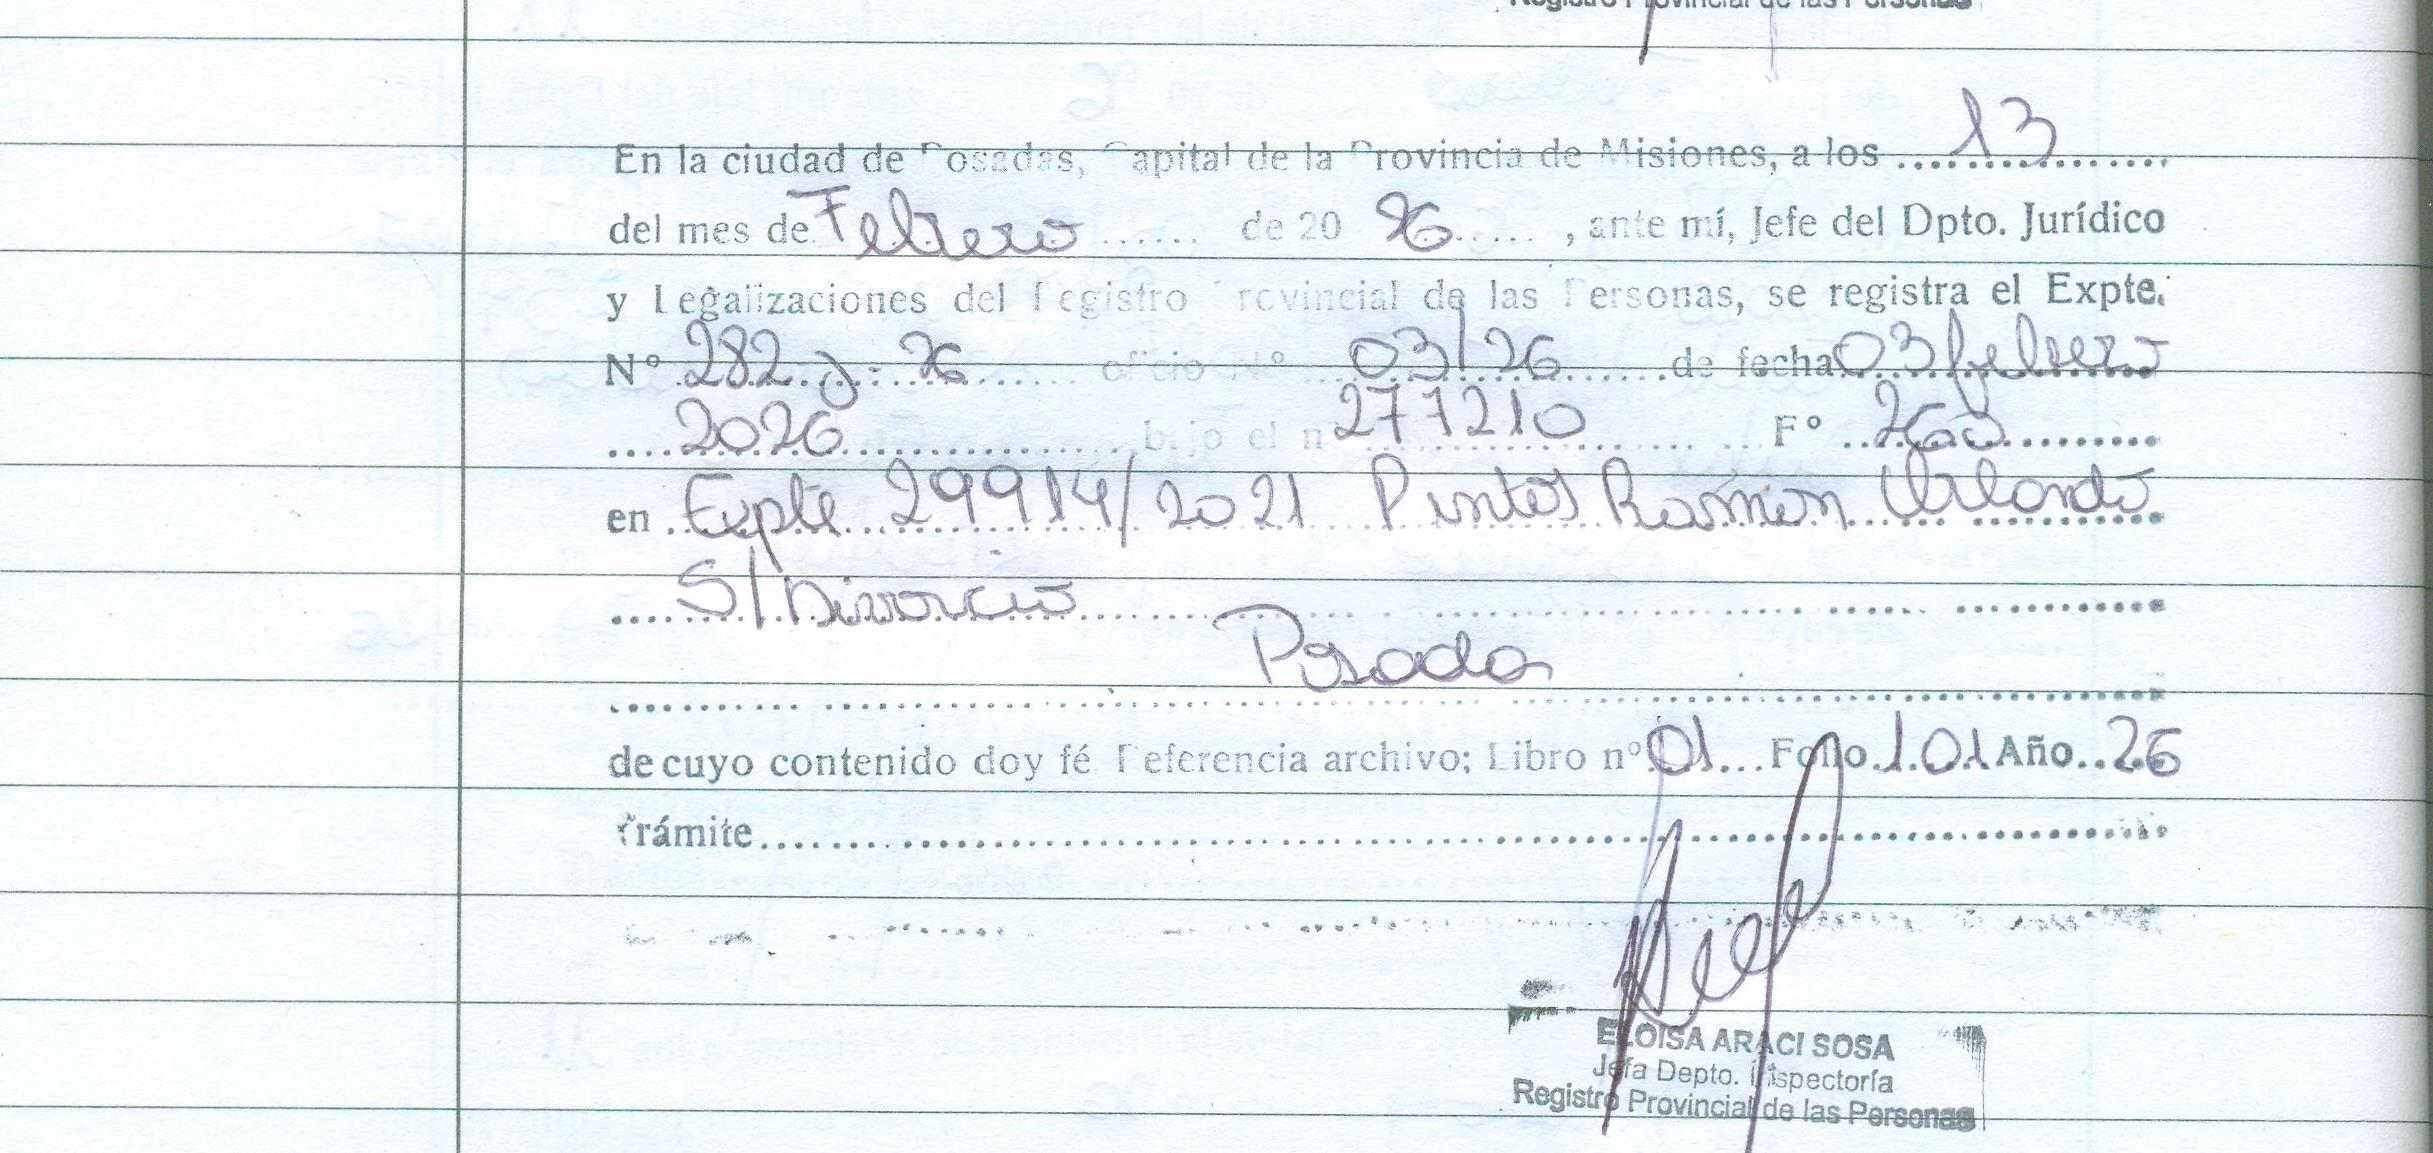 Registro Provincial de las Personas
En la ciudad de Posadas, Capital de la Provincia de Misiones, a los 13
del mes de Febrero de 20 26, ante mí, Jefe del Dpto. Jurídico
y Legalizaciones del Registro Provincial de las Personas, se registra el Expte.
Nº 282 J. 26 oficio Nº 03/26 de fecha 03 febrero
2026 bajo el nº 277210 Fº 260
en Expte 29914/2021 Pintos Ramón Orlando
S/ Divorcio
Posadas
de cuyo contenido doy fé Referencia archivo; Libro nº 01 Folio 101 Año 26
Trámite
ELOISA ARACI SOSA
Jefa Depto. Inspectoría
Registro Provincial de las Personas